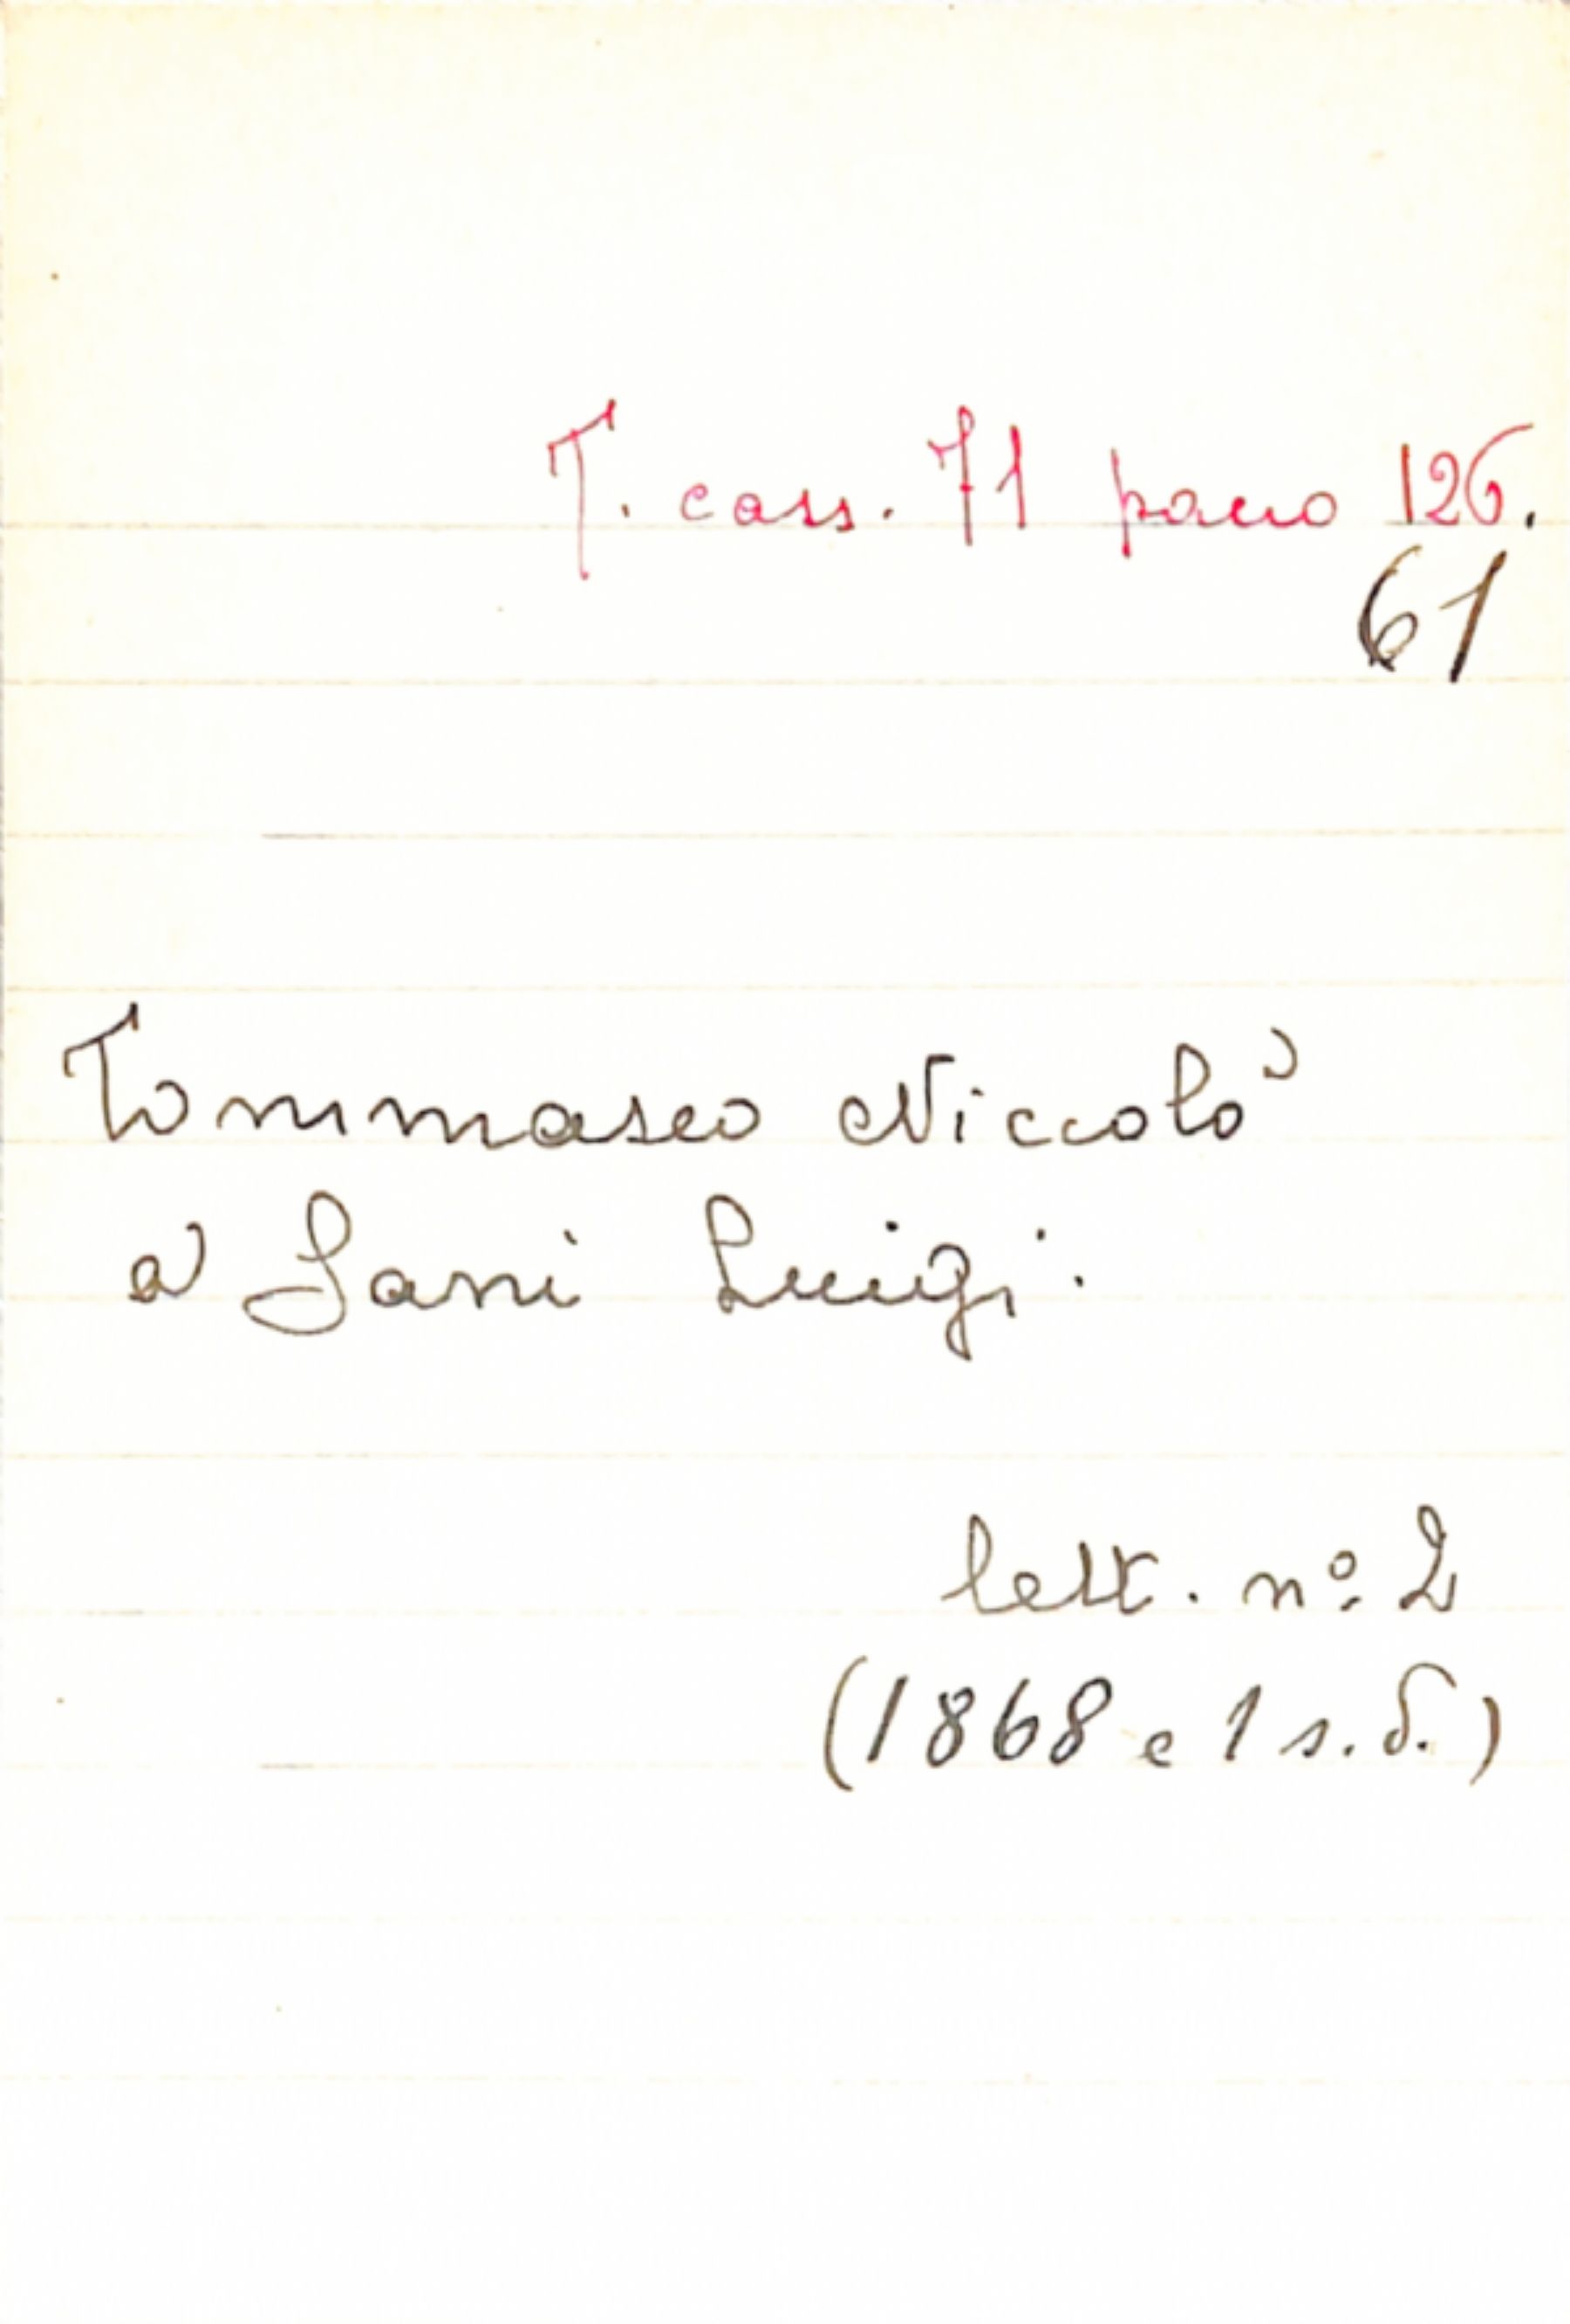 T. cass. 71 pacco 126.
61
Tommaseo Niccolò
a Sani Luigi.
lett. nº 2
(1868 e 1 s.d.)